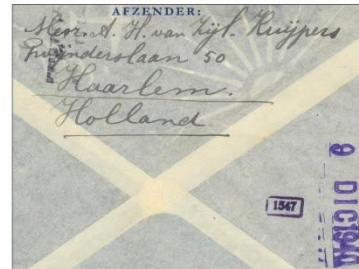 AFZENDER:
Mevr. A. H. van Zijl. Kuijpers
Zuiderslaan 50
Haarlem.
Holland
1547
9 DIC 1940